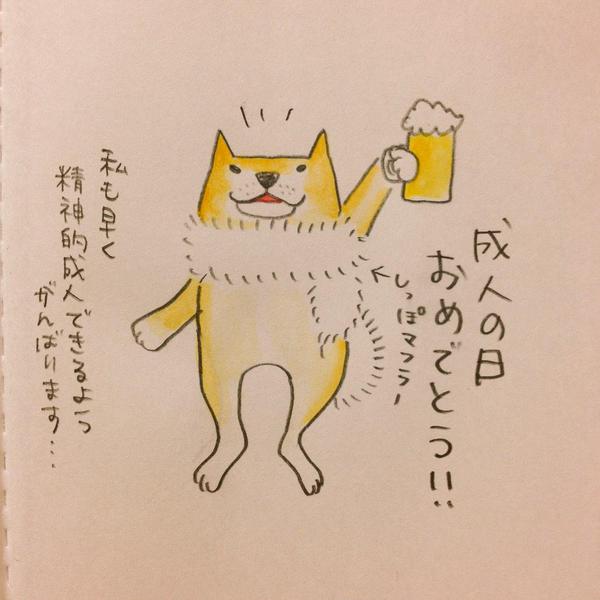 成人の日
おめでとう!!
しっぽマフラー
私も早く
精神的成人できるよう
がんばります...